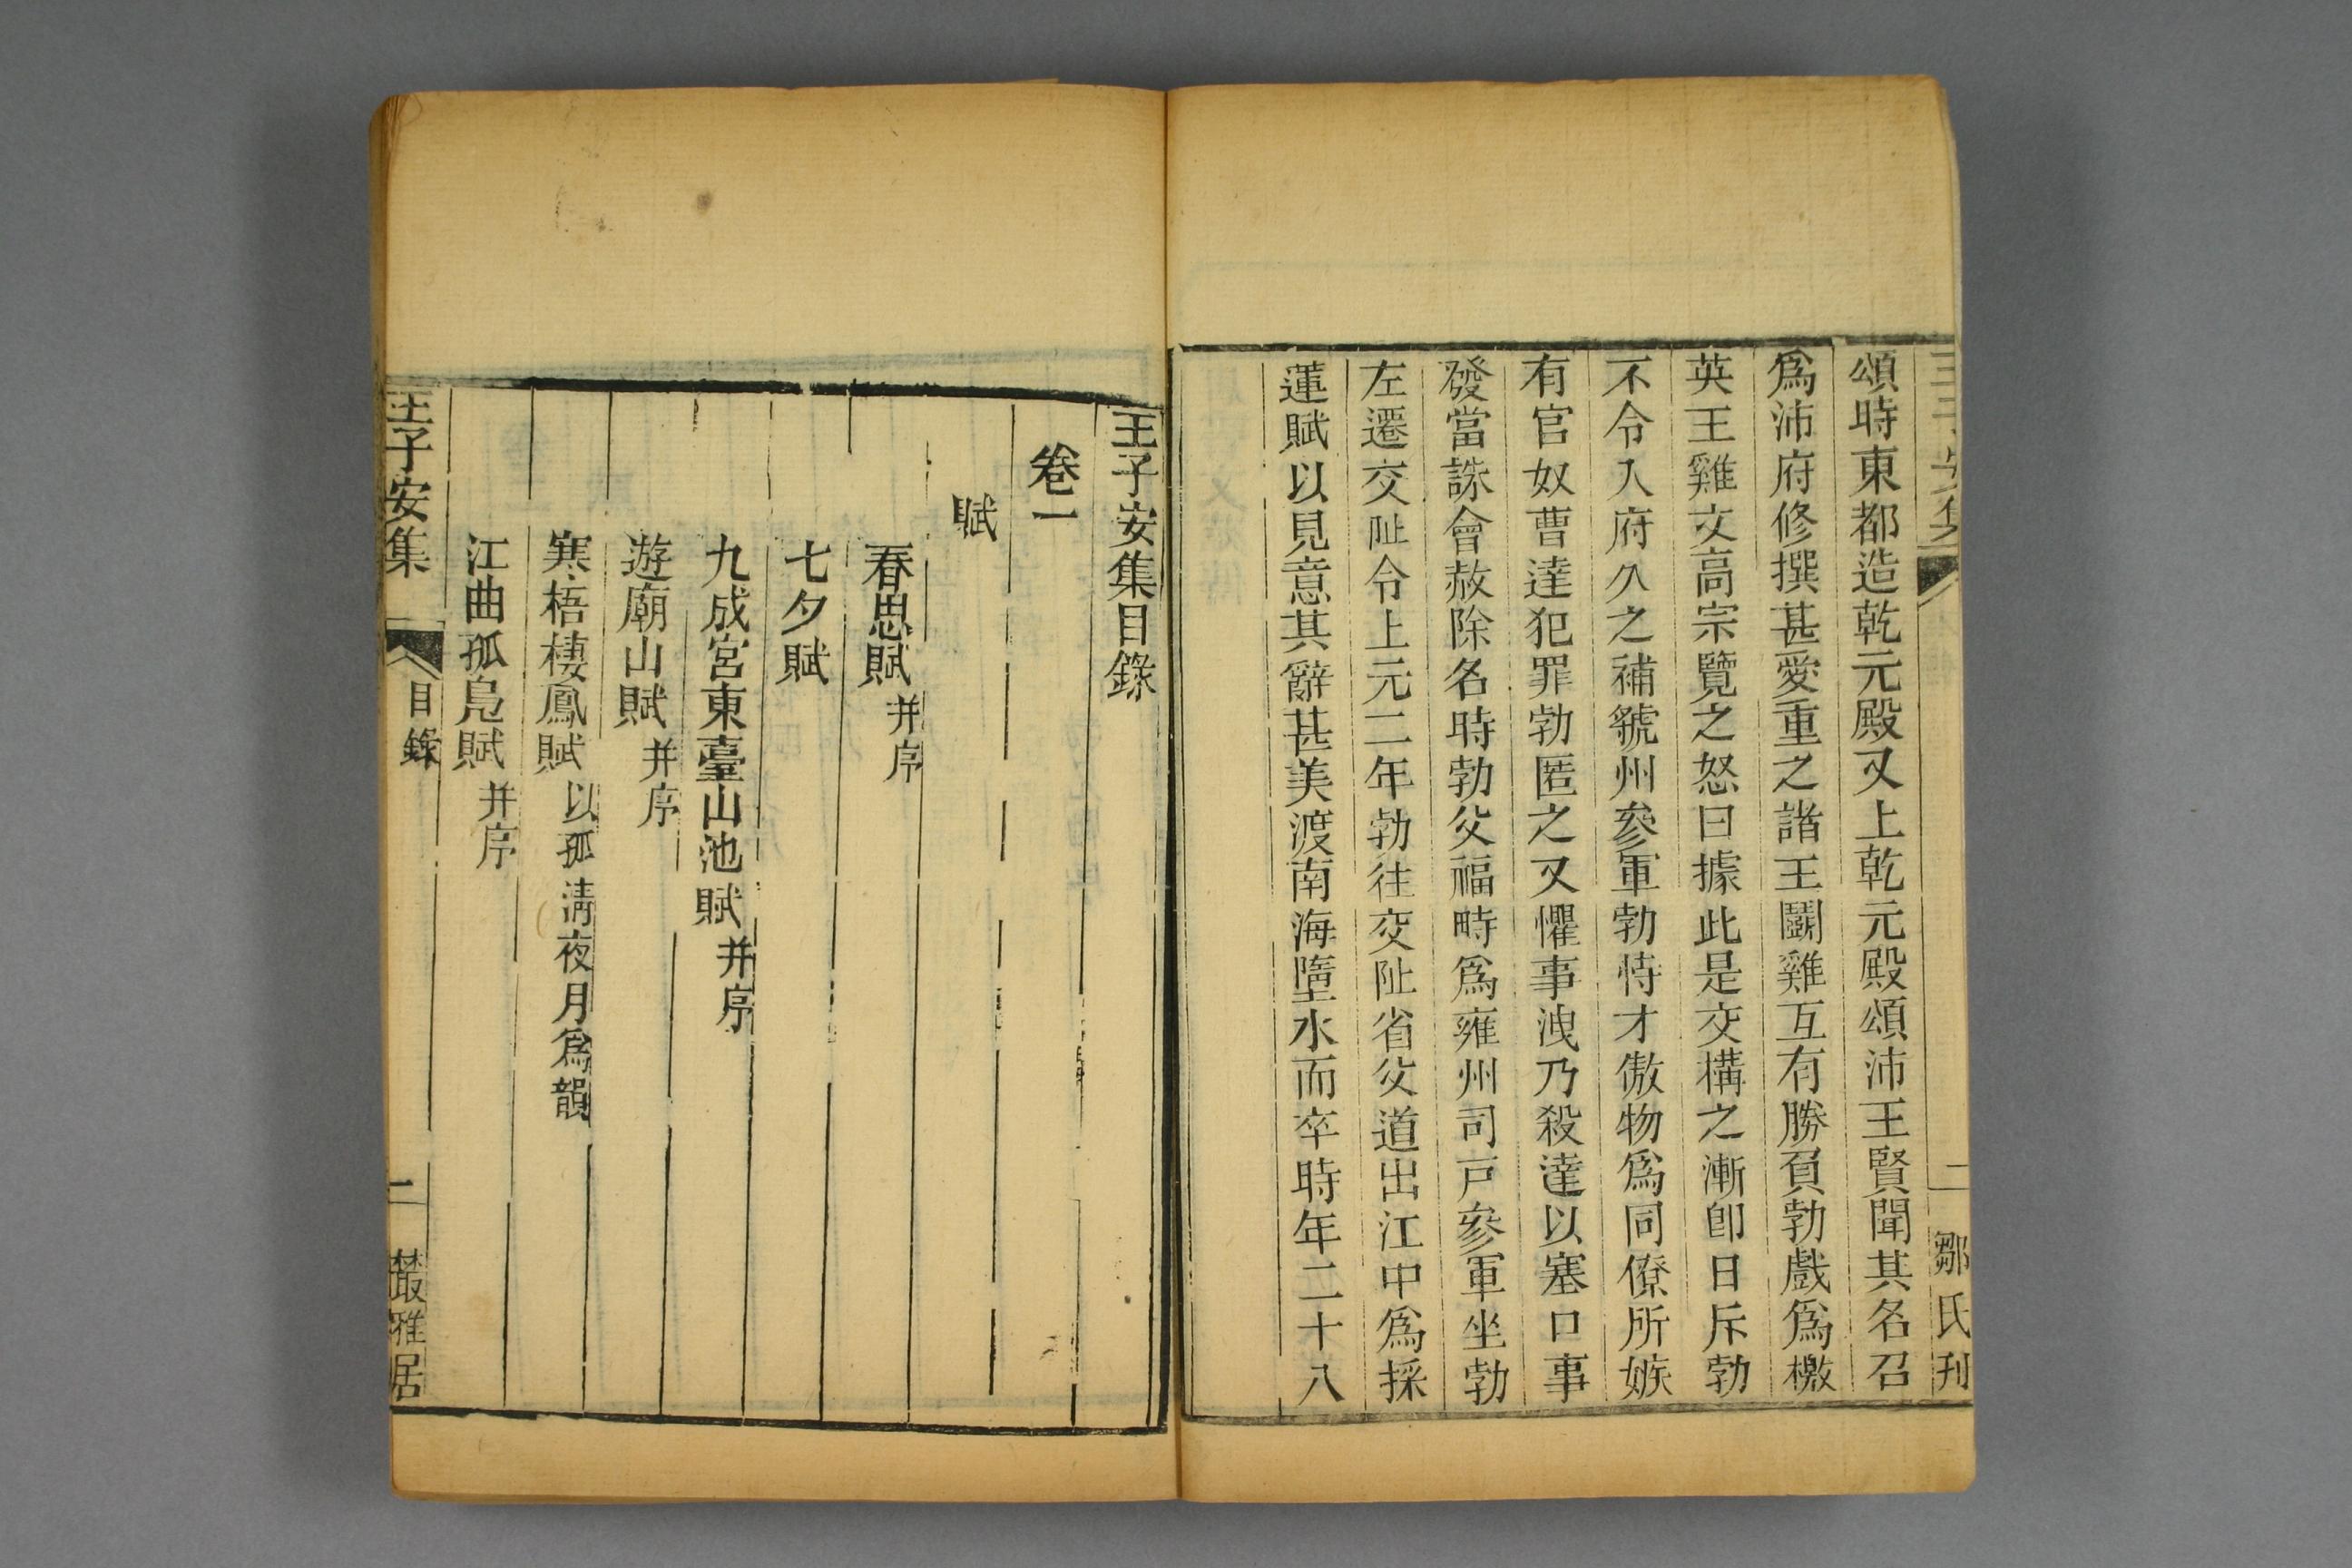 王子安集
二
鄒氏刊
頌時東都造乾元殿又上乾元殿頌沛王賢聞其名召
爲沛府修撰甚愛重之諸王鬭雞互有勝負勃戲爲檄
英王雞文高宗覽之怒曰據此是交構之漸卽日斥勃
不令入府久之補虢州參軍勃恃才傲物爲同僚所嫉
有官奴曹達犯罪勃匿之又懼事洩乃殺達以塞口事
發當誅會赦除名時勃父福畤爲雍州司戸參軍坐勃
左遷交阯令上元二年勃往交阯省父道出江中爲採
蓮賦以見意其辭甚美渡南海墮水而卒時年二十八
王子安集目錄
卷一
賦
春思賦 并序
七夕賦
九成宮東臺山池賦 并序
遊廟山賦 并序
寒梧棲鳳賦 以孤清夜月爲韻
江曲孤鳧賦 并序
王子安集
目錄
一
叢雅居